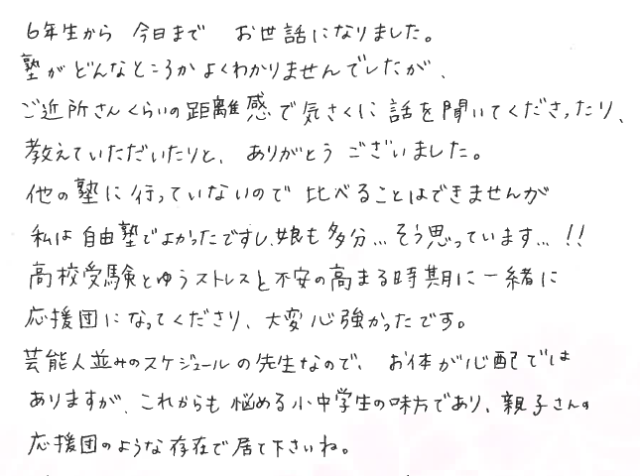 6年生から 今日まで お世話になりました。
塾がどんなところかよくわかりませんでしたが、
ご近所さんくらいの距離感で気さくに話を聞いてくださったり、
教えていただいたりと、ありがとうございました。
他の塾に行っていないので比べることはできませんが
私は自由塾でよかったですし、娘も多分…そう思っています…!!
高校受験とゆうストレスと不安の高まる時期に一緒に
応援団になってくださり、大変心強かったです。
芸能人並みのスケジュールの先生なので、お体が心配では
ありますが、これからも悩める小中学生の味方であり、親子さんの
応援団のような存在で居て下さいね。